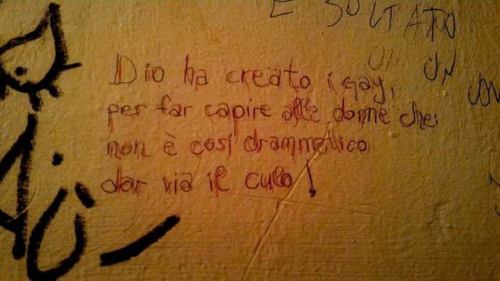 È SOLTATO
UN
UN
Dio ha creato i gay,
per far capire alle donne che
non è così drammatico
dar via il culo!